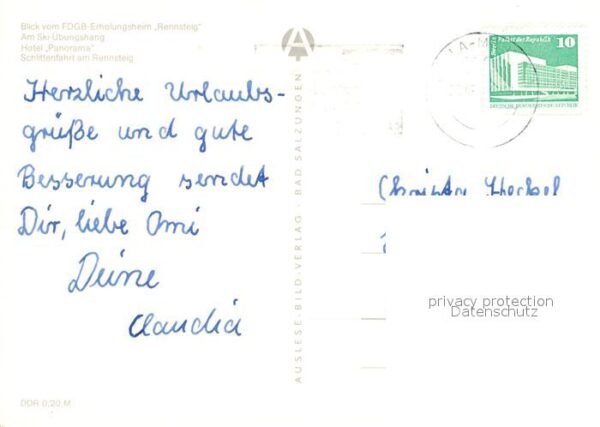 Blick vom FDGB-Erholungsheim „Rennsteig"
Am Ski-Übungshang
Hotel „Panorama"
Schlittenfahrt am Rennsteig
Herzliche Urlaubs-
grüße und gute
Besserung sendet
Dir, liebe Omi
Deine
Claudia
DDR 0,20 M
AUSLESE-BILD-VERLAG · BAD SALZUNGEN
A
Berlin Palast der Republik 10
DEUTSCHE DEMOKRATISCHE REPUBLIK
privacy protection
Datenschutz